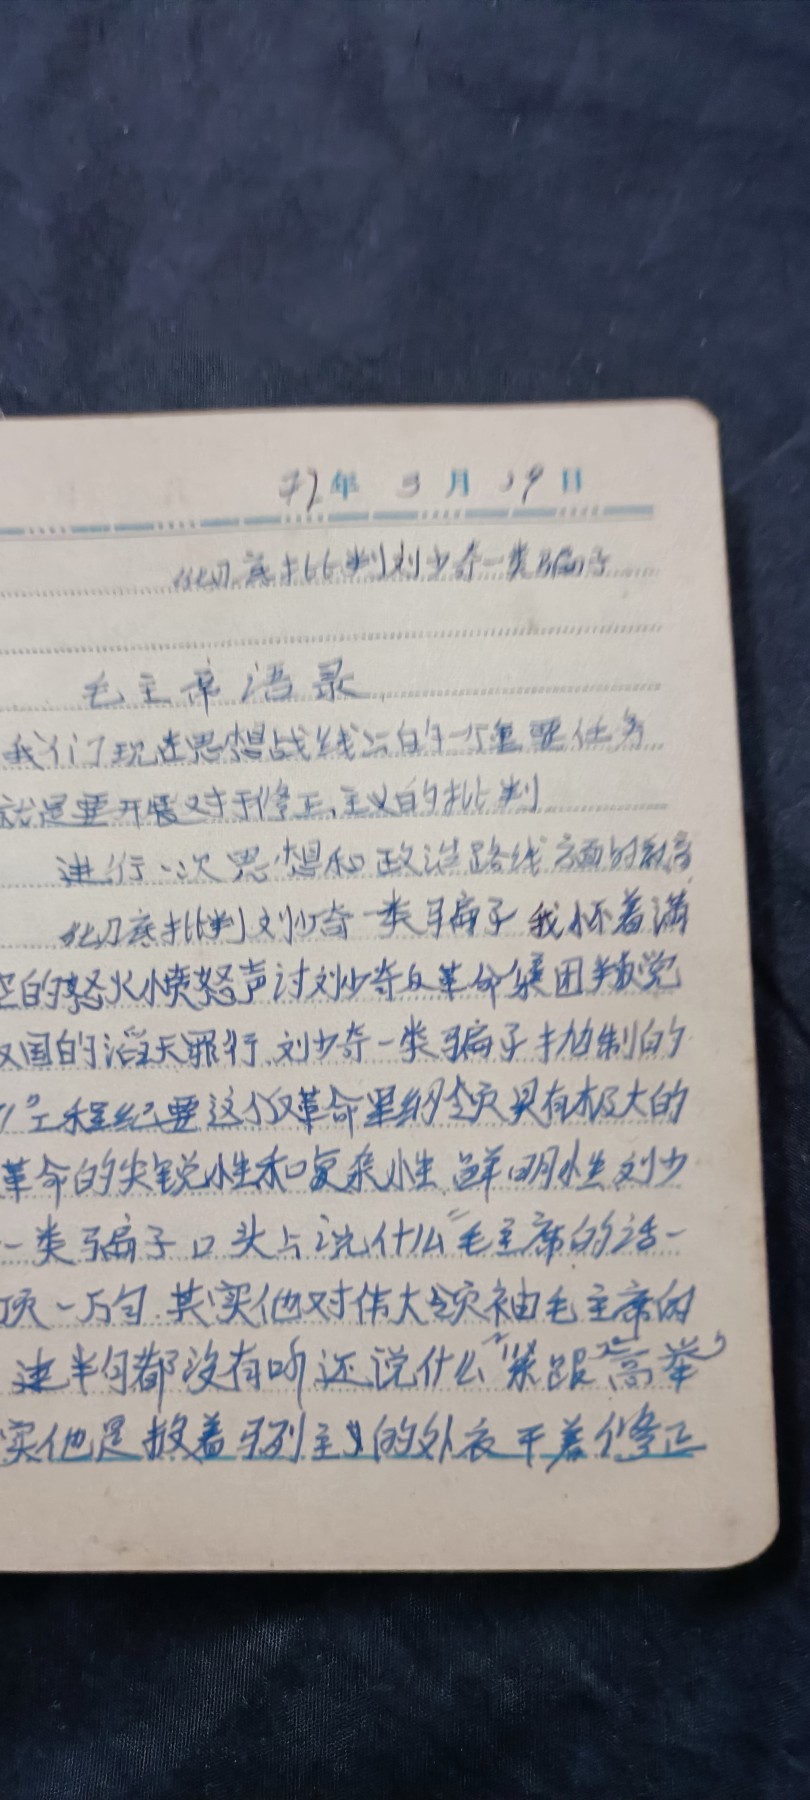 72年3月19日
彻底批判刘少奇一类骗子
毛主席语录
我们现在思想战线上的一个重要任务
就是要开展对于修正主义的批判
进行一次思想和政治路线方面的教育
彻底批判刘少奇一类骗子我怀着满
腔的怒火愤怒声讨刘少奇反革命集团叛党
叛国的滔天罪行刘少奇一类骗子抛制的
工程纪要这个反革命黑纲领具有极大的
革命的尖锐性和复杂性 鲜明性刘少
一类骗子口头上说什么“毛主席的话一
顶一万句.其实他对伟大领袖毛主席的
连半句都没有听还说什么“紧跟”“高举”
实他是披着马列主义的外衣干着修正